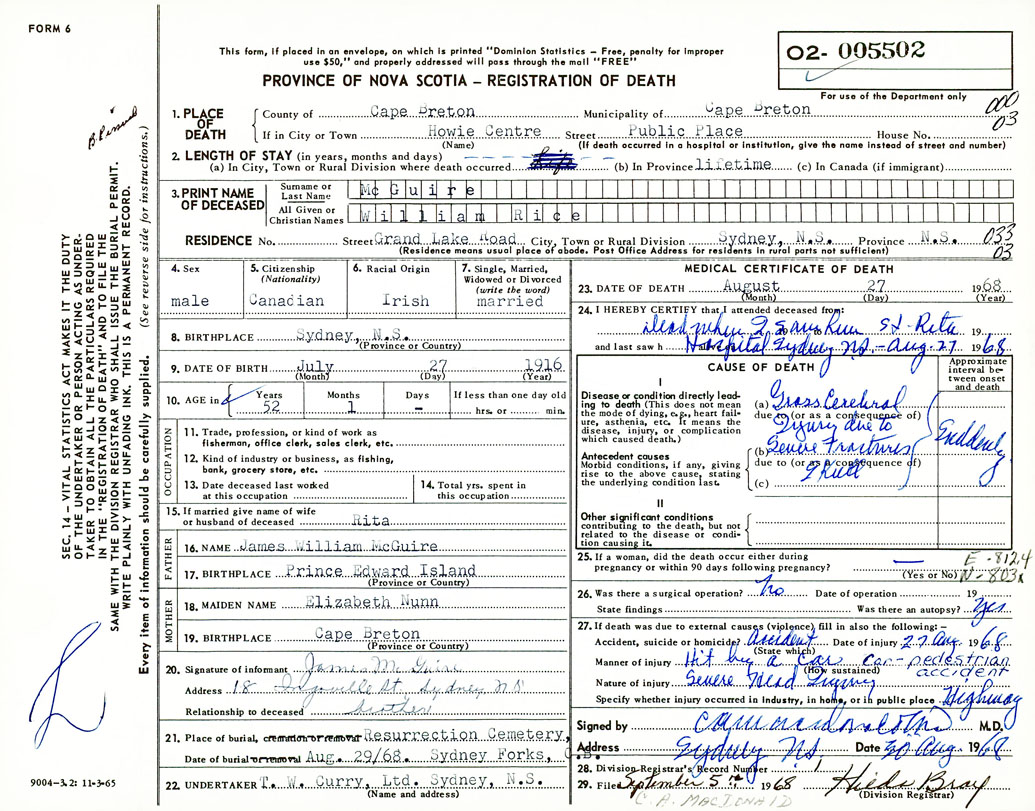 FORM 6
This form, if placed in an envelope, on which is printed "Dominion Statistics – Free, penalty for improper
use $50," and properly addressed will pass through the mail "FREE"
PROVINCE OF NOVA SCOTIA – REGISTRATION OF DEATH
02- 005502
For use of the Department only
000
03
1. PLACE OF DEATH
County of Cape Breton Municipality of Cape Breton
If in City or Town Howie Centre Street Public Place House No.
(Name) (If death occurred in a hospital or institution, give the name instead of street and number)
2. LENGTH OF STAY (in years, months and days)
(a) In City, Town or Rural Division where death occurred (b) In Province lifetime (c) In Canada (if immigrant)
3. PRINT NAME OF DECEASED
Surname or Last Name McGuire
All Given or Christian Names William Rice
RESIDENCE No. Street Grand Lake Road City, Town or Rural Division Sydney, N.S. Province N.S.
(Residence means usual place of abode. Post Office Address for residents in rural parts not sufficient)
033
03
4. Sex
male
5. Citizenship (Nationality)
Canadian
6. Racial Origin
Irish
7. Single, Married, Widowed or Divorced (write the word)
married
8. BIRTHPLACE Sydney, N.S.
(Province or Country)
9. DATE OF BIRTH July 27 1916
(Month) (Day) (Year)
10. AGE in Years Months Days If less than one day old
52 1 – hrs. or min.
OCCUPATION
11. Trade, profession, or kind of work as
fisherman, office clerk, sales clerk, etc.
12. Kind of industry or business, as fishing,
bank, grocery store, etc.
13. Date deceased last worked
at this occupation
14. Total yrs. spent in
this occupation
15. If married give name of wife
or husband of deceased Rita
FATHER
16. NAME James William McGuire
17. BIRTHPLACE Prince Edward Island
(Province or Country)
MOTHER
18. MAIDEN NAME Elizabeth Nunn
19. BIRTHPLACE Cape Breton
(Province or Country)
20. Signature of informant James McGuire
Address 18 St, Sydney NS
Relationship to deceased brother
21. Place of burial, cremation or removal Resurrection Cemetery,
Date of burial or removal Aug. 29/68. Sydney Forks, C.B.
22. UNDERTAKER T. W. Curry, Ltd. Sydney, N.S.
(Name and address)
MEDICAL CERTIFICATE OF DEATH
23. DATE OF DEATH August 27 1968
(Month) (Day) (Year)
24. I HEREBY CERTIFY that I attended deceased from:
dead when I saw him St. Rita 19
and last saw h Hospital Sydney NS – Aug. 27 1968
CAUSE OF DEATH
Approximate interval between onset and death
I
Disease or condition directly leading to death (This does not mean
the mode of dying, e.g., heart failure, asthenia, etc. It means the
disease, injury, or complication
which caused death.)
(a) Gross Cerebral
due to (or as a consequence of)
Injury due to
Antecedent causes
Morbid conditions, if any, giving
rise to the above cause, stating
the underlying condition last.
(b) Severe Fractures
due to (or as a consequence of)
Skull
(c)
Suddenly
II
Other significant conditions
contributing to the death, but not
related to the disease or condition causing it.
25. If a woman, did the death occur either during
pregnancy or within 90 days following pregnancy? —
(Yes or No)
E-812.4
N-803
26. Was there a surgical operation? No Date of operation 19
State findings Was there an autopsy? Yes
27. If death was due to external causes (violence) fill in also the following:–
Accident, suicide or homicide? Accident Date of injury 27 Aug. 1968
(State which)
Manner of injury Hit by a car car-pedestrian accident
(How sustained)
Nature of injury Severe Head Injury
Specify whether injury occurred in industry, in home, or in public place Highway
Signed by M.D.
Address Sydney NS Date 30 Aug. 1968
28. Division Registrar's Record Number
29. Filed September 5th 1968 Hilda Bray
(Division Registrar)
C. A. MACDONALD
SEC. 14 – VITAL STATISTICS ACT MAKES IT THE DUTY
OF THE UNDERTAKER OR PERSON ACTING AS UNDER-
TAKER TO OBTAIN ALL THE PARTICULARS REQUIRED
IN THE "REGISTRATION OF DEATH" AND TO FILE THE
SAME WITH THE DIVISION REGISTRAR WHO SHALL ISSUE THE BURIAL PERMIT.
WRITE PLAINLY WITH UNFADING INK. THIS IS A PERMANENT RECORD.
Every item of information should be carefully supplied. (See reverse side for instructions.)
9004-3.2: 11-3-65